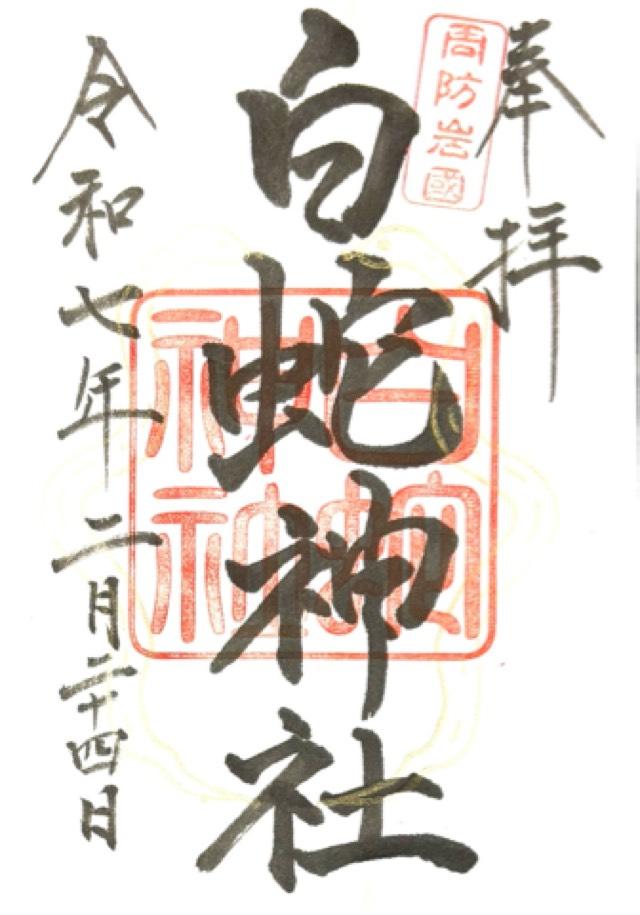 奉拝
周防岩國
白蛇神社
白蛇神社
令和七年二月二十四日